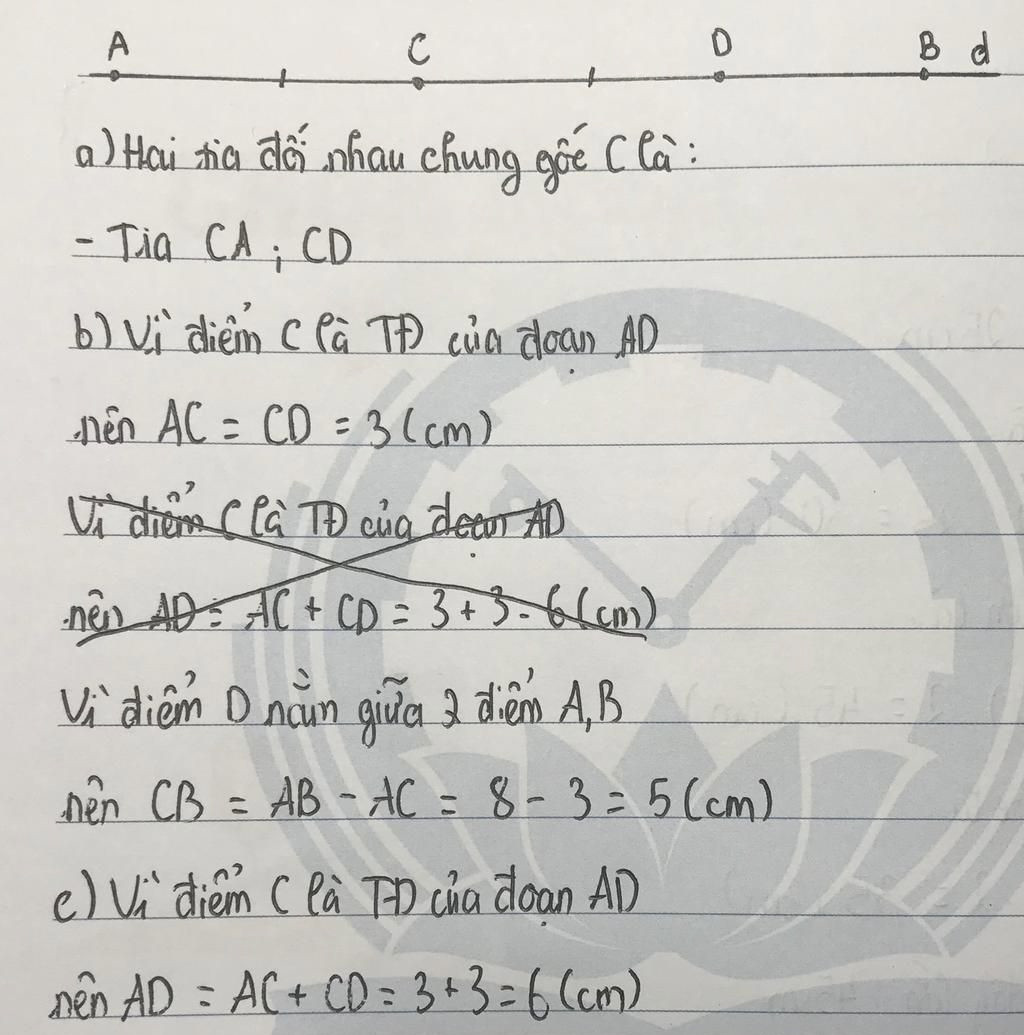 A C D B d
a) Hai tia đối nhau chung gốc C là:
- Tia CA ; CD
b) Vì điểm C là TĐ của đoạn AD
nên AC = CD = 3 (cm)
Vì điểm C là TĐ của đoạn AD
nên AD = AC + CD = 3 + 3 = 6 (cm)
Vì điểm D nằm giữa 2 điểm A, B
nên CB = AB - AC = 8 - 3 = 5 (cm)
c) Vì điểm C là TĐ của đoạn AD
nên AD = AC + CD = 3 + 3 = 6 (cm)